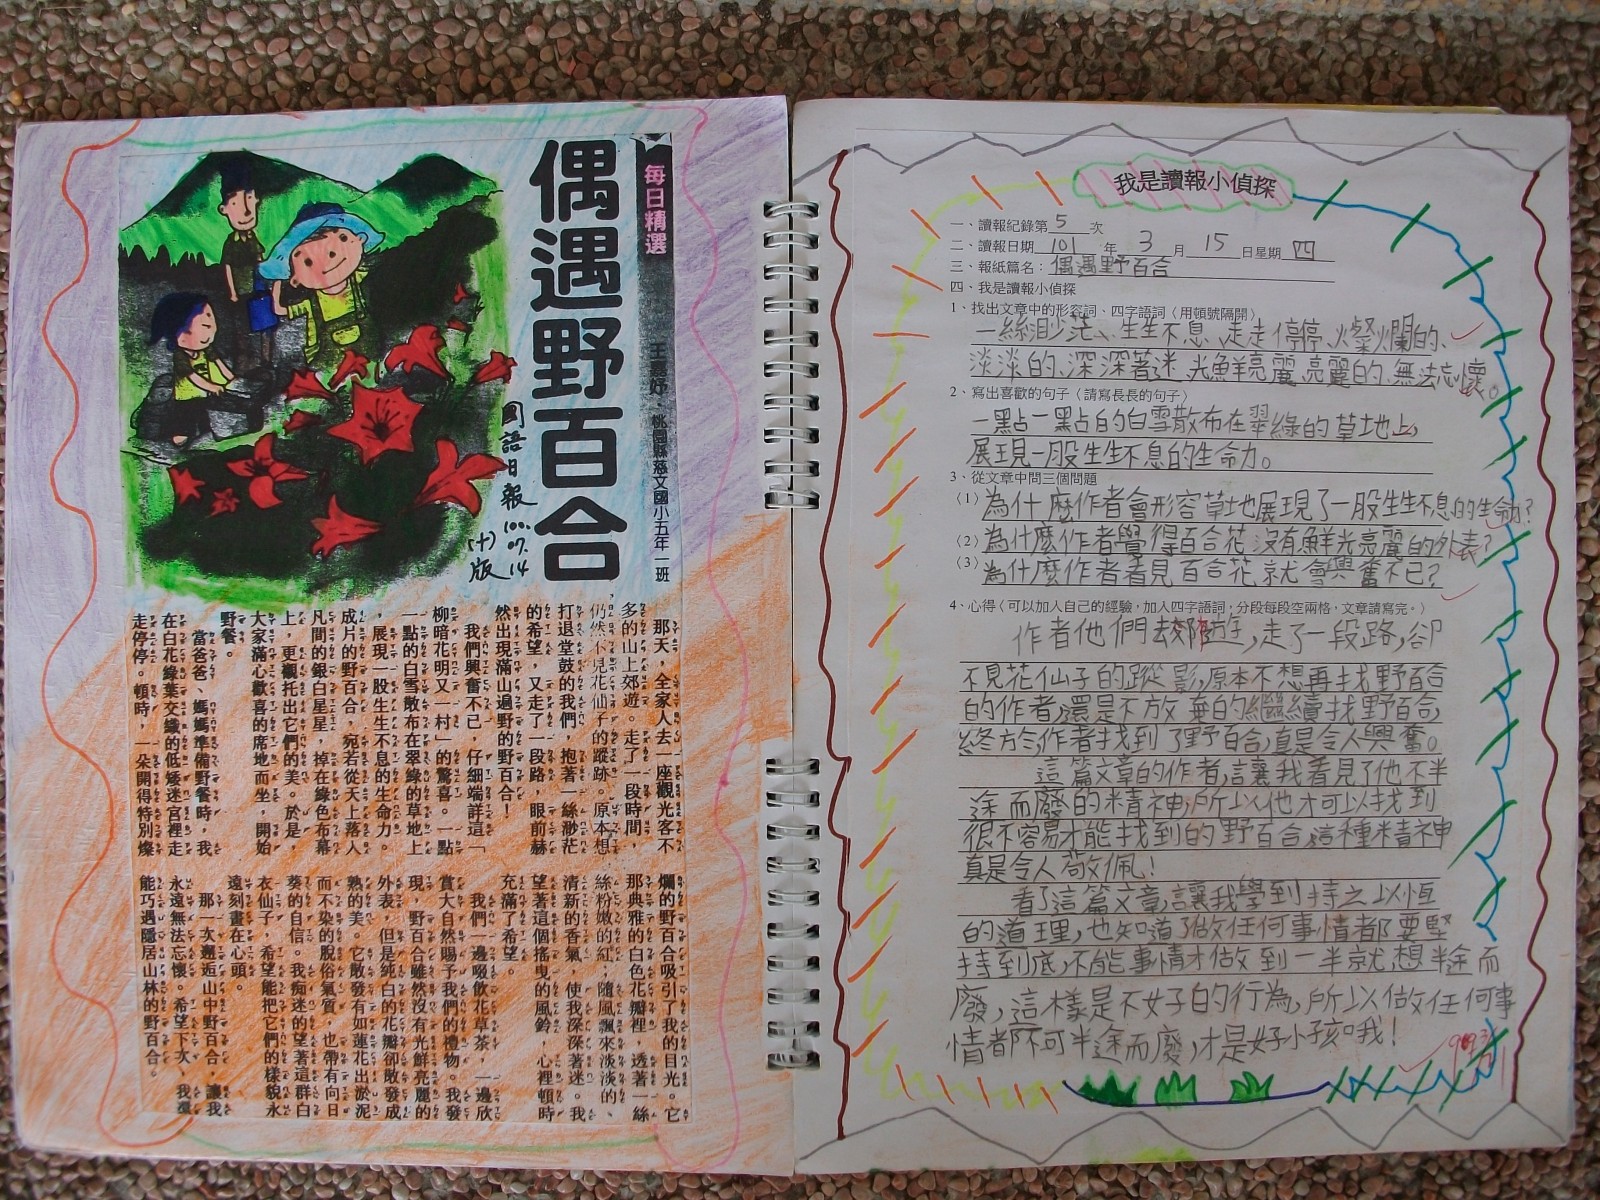 每日精選
偶遇野百合
王嘉妤．桃園縣慈文國小五年一班
國語日報
100.07.14
(十)版
那天，全家人去一座觀光客不
多的山上郊遊。走了一段時間，
仍然不見花仙子的蹤跡。原本想
打退堂鼓的我們，抱著一絲渺茫
的希望，又走了一段路，眼前赫
然出現滿山遍野的野百合！
我們興奮不已，仔細端詳這「
柳暗花明又一村」的驚喜。一點
一點的白雪散布在翠綠的草地上
，展現一股生生不息的生命力。
成片的野百合，宛若從天上落入
凡間的銀白星星，掉在綠色布幕
上，更襯托出它們的美。於是，
大家滿心歡喜的席地而坐，開始
野餐。
當爸爸、媽媽準備野餐時，我
在白花綠葉交織的低矮迷宮裡走
走停停。頓時，一朵開得特別燦
爛的野百合吸引了我的目光。它
那典雅的白色花瓣裡，透著一絲
絲粉嫩的紅；隨風飄來淡淡的、
清新的香氣，使我深深著迷。我
望著這個搖曳的風鈴，心裡頓時
充滿了希望。
我們一邊啜飲花草茶，一邊欣
賞大自然賜予我們的禮物。我發
現，野百合雖然沒有光鮮亮麗的
外表，但是純白的花瓣卻散發成
熟的美。它散發有如蓮花出淤泥
而不染的脫俗氣質，也帶有向日
葵的自信。我痴迷的望著這群白
衣仙子，希望能把它們的樣貌永
遠刻畫在心頭。
那一次邂逅山中野百合，讓我
永遠無法忘懷。希望下次，我還
能巧遇隱居山林的野百合。
我是讀報小偵探
一、讀報紀錄第 5 次
二、讀報日期 101 年 3 月 15 日星期 四
三、報紙篇名：偶遇野百合
四、我是讀報小偵探
1、找出文章中的形容詞、四字語詞（用頓號隔開）
一絲渺茫、生生不息、走走停停、燦爛的、
淡淡的、深深著迷、光鮮亮麗、亮麗的、無法忘懷。
2、寫出喜歡的句子（請寫長長的句子）
一點一點的白雪散布在翠綠的草地上，
展現一股生生不息的生命力。
3、從文章中問三個問題
(1) 為什麼作者會形容草地展現了一股生生不息的生命力？
(2) 為什麼作者覺得百合花沒有鮮光亮麗的外表？
(3) 為什麼作者看見百合花就會興奮不已？
4、心得（可以加入自己的經驗，加入四字語詞，分段每段空兩格，文章請寫完。）
作者他們去郊遊，走了一段路，卻
不見花仙子的蹤影，原本不想再找野百合
的作者，還是不放棄的繼續找野百合，
終於，作者找到了野百合，真是令人興奮。
這篇文章的作者，讓我看見了他不半
途而廢的精神，所以他才可以找到
很不容易才能找到的野百合，這種精神
真是令人敬佩！
看了這篇文章，讓我學到持之以恆
的道理，也知道了做任何事情都要堅
持到底，不能事情才做到一半就想半途而
廢，這樣是不好的行為，所以做任何事
情都不可半途而廢，才是好小孩哦！